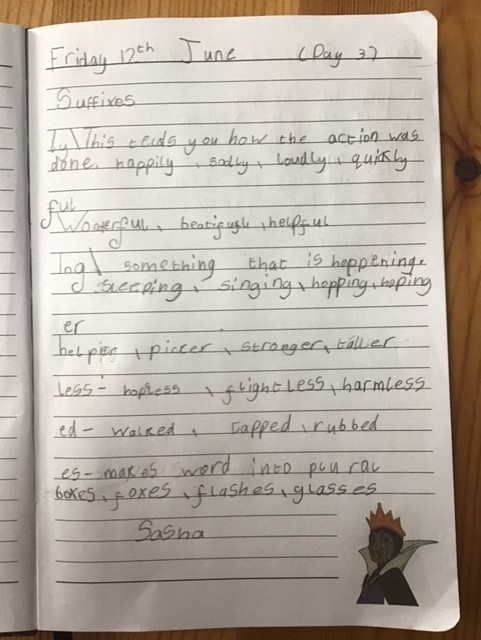 Friday 12th June (Day 3)
Suffixes
ly\ This tells you how the action was
done. happily, sadly, loudly, quickly
ful
Wonderful, beatifull, helpful
Ing\ something that is happening.
sleeping, singing, hopping, hoping
er
helper, picker, stronger, taller
less- hopless, flightless, harmless
ed- walked, tapped, rubbed
es- makes word into plural
boxes, foxes, flashes, glasses
Sasha